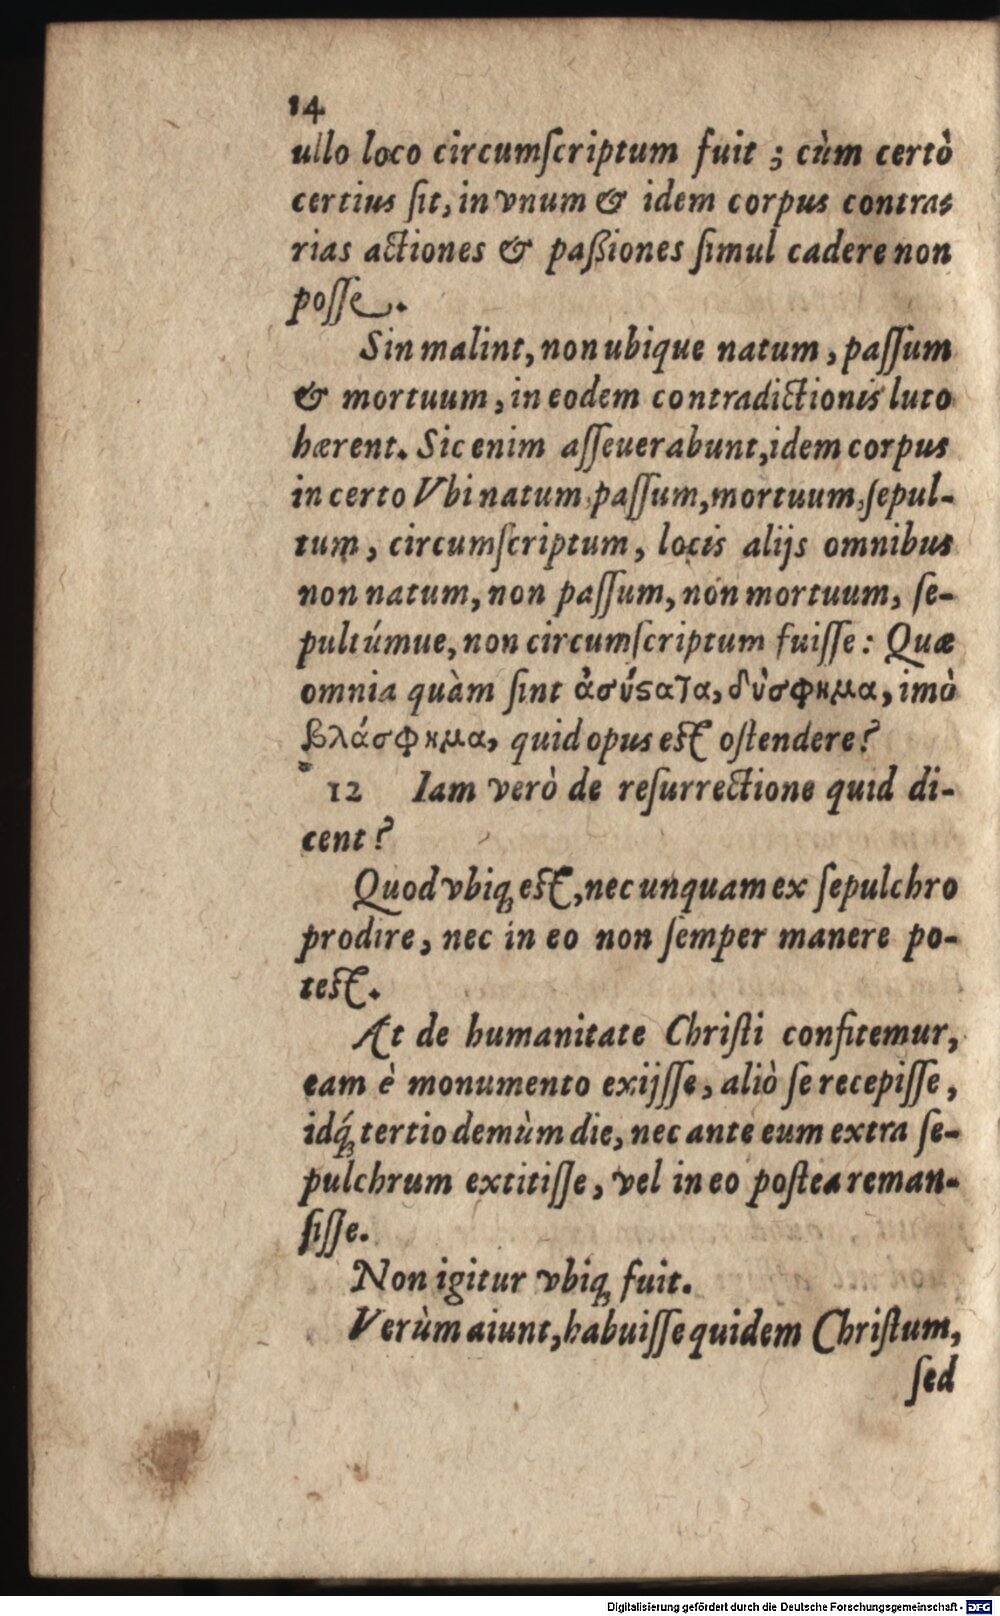 14
ullo loco circumſcriptum fuit ; cùm certò
certius ſit, in vnum & idem corpus contra-
rias actiones & paßiones ſimul cadere non
poſſe.
Sin malint, non ubique natum, paſſum
& mortuum, in eodem contradictionis luto
hærent. Sic enim aſſeuerabunt, idem corpus
in certo Vbi natum, paſſum, mortuum, ſepul-
tum, circumſcriptum, locis alijs omnibus
non natum, non paſſum, non mortuum, ſe-
pultúmue, non circumſcriptum fuiſſe: Quæ
omnia quàm ſint ἀσύϛατα, δύσφημα, imò
βλάσφημα, quid opus est oſtendere?
12 Iam verò de reſurrectione quid di-
cent?
Quod vbiq; est, nec unquam ex ſepulchro
prodire, nec in eo non ſemper manere po-
test.
At de humanitate Chriſti confitemur,
eam è monumento exijſſe, aliò ſe recepiſſe,
idq́; tertio demùm die, nec ante eum extra ſe-
pulchrum extitiſſe, vel in eo poſtea reman-
ſiſſe.
Non igitur vbiq; fuit.
Verùm aiunt, habuiſſe quidem Chriſtum,
ſed
Digitalisierung gefördert durch die Deutsche Forschungsgemeinschaft - DFG